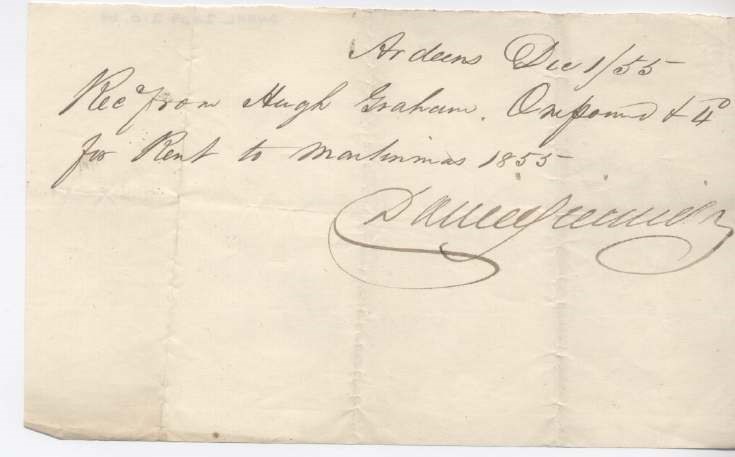 Ardeens Dec 1/55
Recd from Hugh Graham. One pound & 4d
for Rent to Martinmas 1855